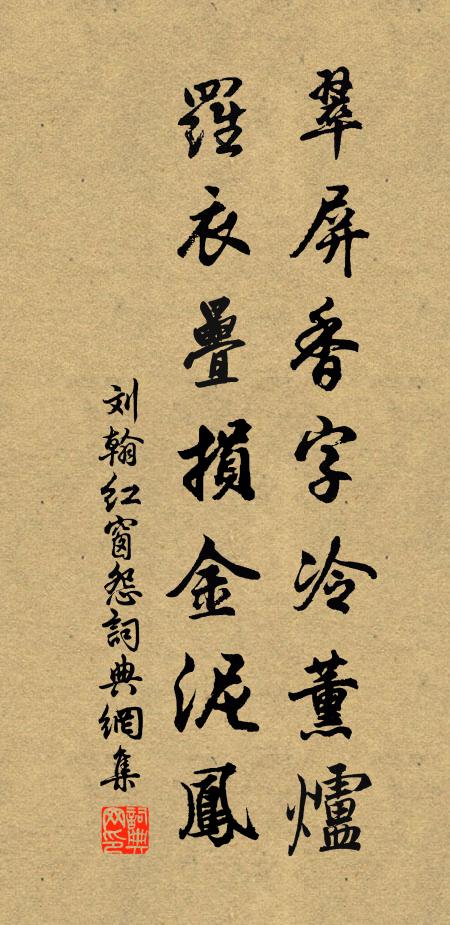 翠屏香字冷薰爐
羅衣疊損金泥鳳
刘翰红窗怨詞典網集
詞典网印